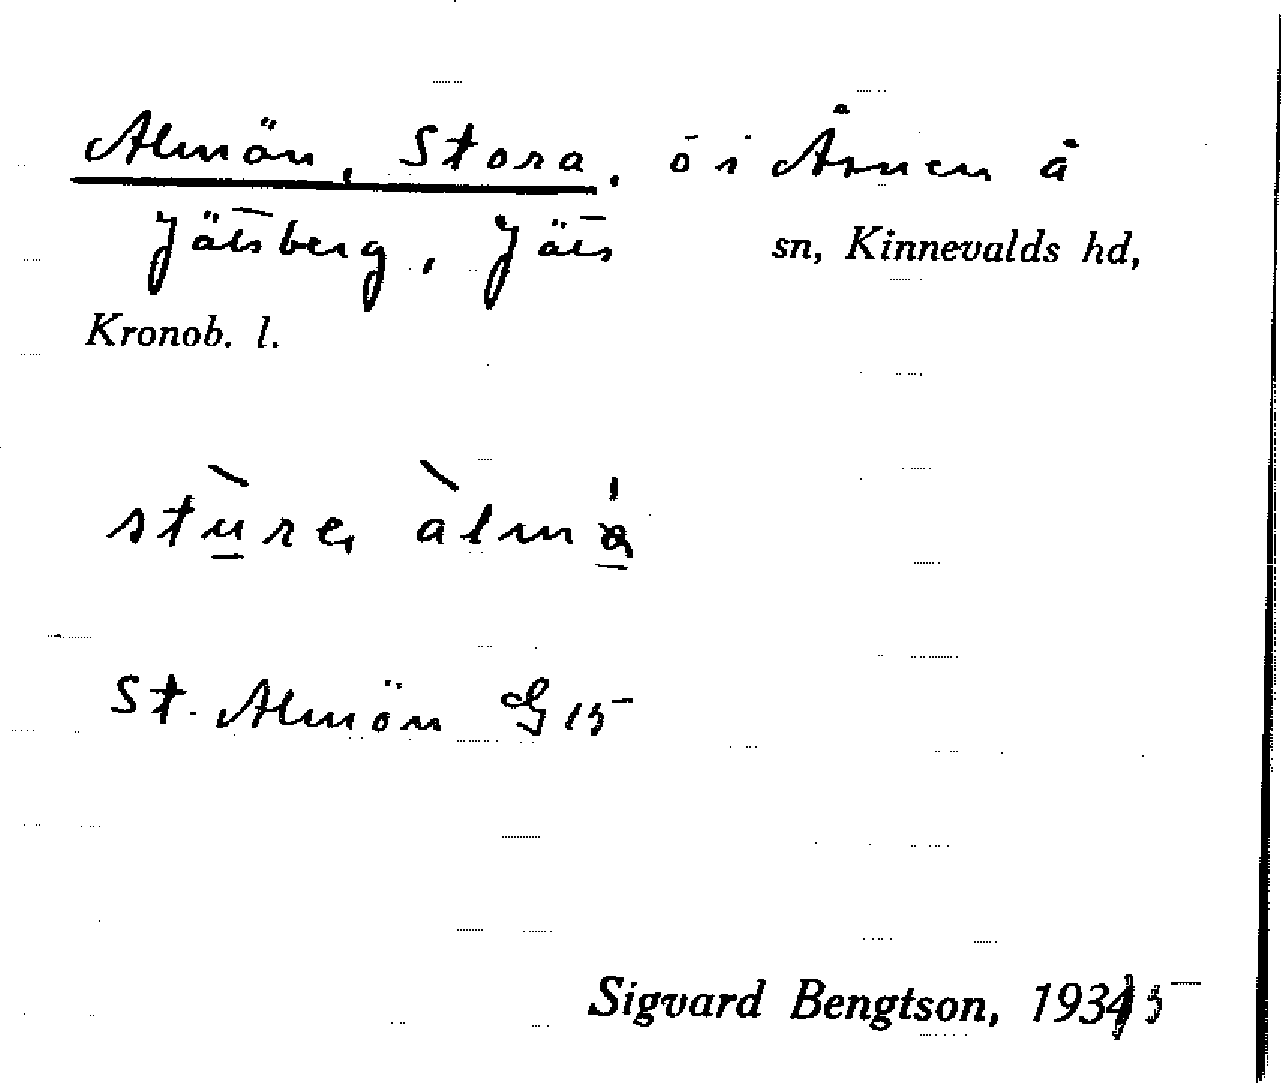 Almön, Stora. ö i Åsnen å
Jätsberg, Jäts sn, Kinnevalds hd,
Kronob. l.
stùre, àlmá
St. Almön G 15
Sigvard Bengtson, 1935